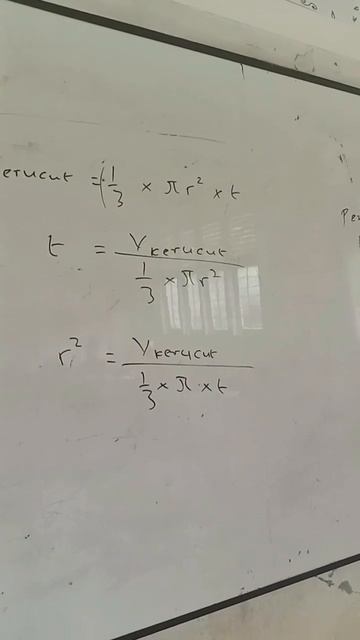 erucut = 1/3 × πr² × t
t = Vkerucut / 1/3 × πr²
r² = Vkerucut / 1/3 × π × t